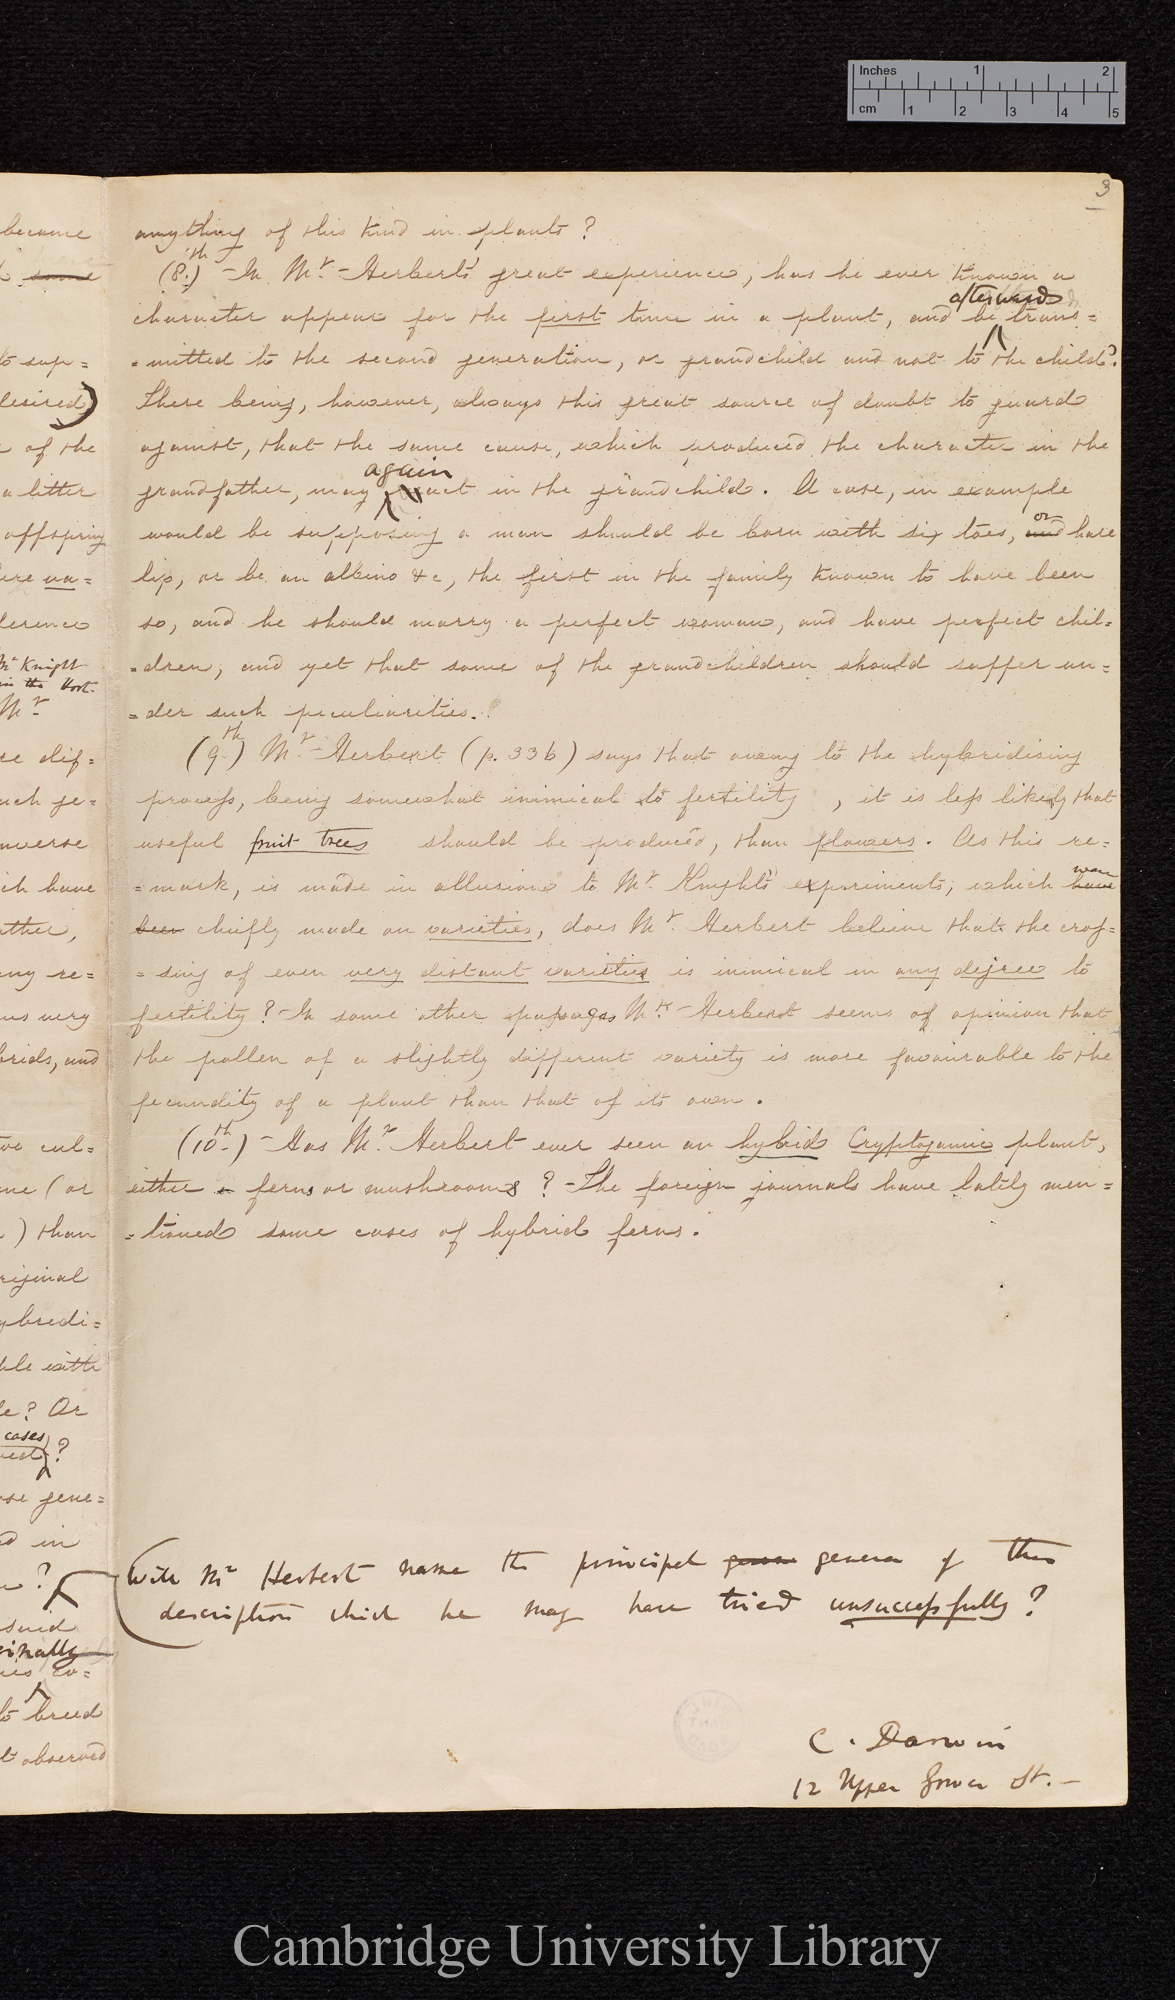 Inches 1 2
cm 1 2 3 4 5
3
became
some
to sup=
desired)
of the
a litter
offspring
va=
ference
Mr Knight
in the Hort.
Mr
dif=
such ge=
inverse
have
ather,
any re=
very
brids, and
two cul=
(or
) than
riginal
ybridi=
with
? Or
cases
?
gene=
in
?
said
inally
to breed
observed
anything of this kind in plants?
(8.th) - In Mr. Herbert's great experience, has he ever known a
afterwards
character appear for the first time in a plant, and be trans=
=mitted to the second generation, or grandchild and not to the child?
There being, however, always this great source of doubt to guard
against, that the same cause, which produced the character in the
again
grandfather, may act in the grandchild. A case, in example
or
would be supposing a man should be born with six toes, and hare
lip, or be an albino &c, the first in the family known to have been
so, and he should marry a perfect woman, and have perfect chil=
=dren, and yet that some of the grandchildren should suffer un=
=der such peculiarities.
(9.th) Mr. Herbert (p. 336) says that owing to the hybridising
process, being somewhat inimical to fertility , it is less likely that
useful fruit trees should be produced, than flowers. As this re=
were
=mark, is made in allusion to Mr. Knight's experiments, which have
been chiefly made on varieties, does Mr. Herbert believe that the cros=
=sing of even very distant varieties is inimical in any degree to
fertility? - In some other passages Mr. Herbert seems of opinion that
the pollen of a slightly different variety is more favourable to the
fecundity of a plant than that of its own.
(10.th) - Has Mr. Herbert ever seen an hybrid Cryptogamic plant,
either ferns or mushrooms? - The foreign journals have lately men=
=tioned some cases of hybrid ferns.
(Will Mr Herbert name the principal genera of this
description which he may have tried unsuccessfully?
C. Darwin
12 Upper Gower St. -
Cambridge University Library